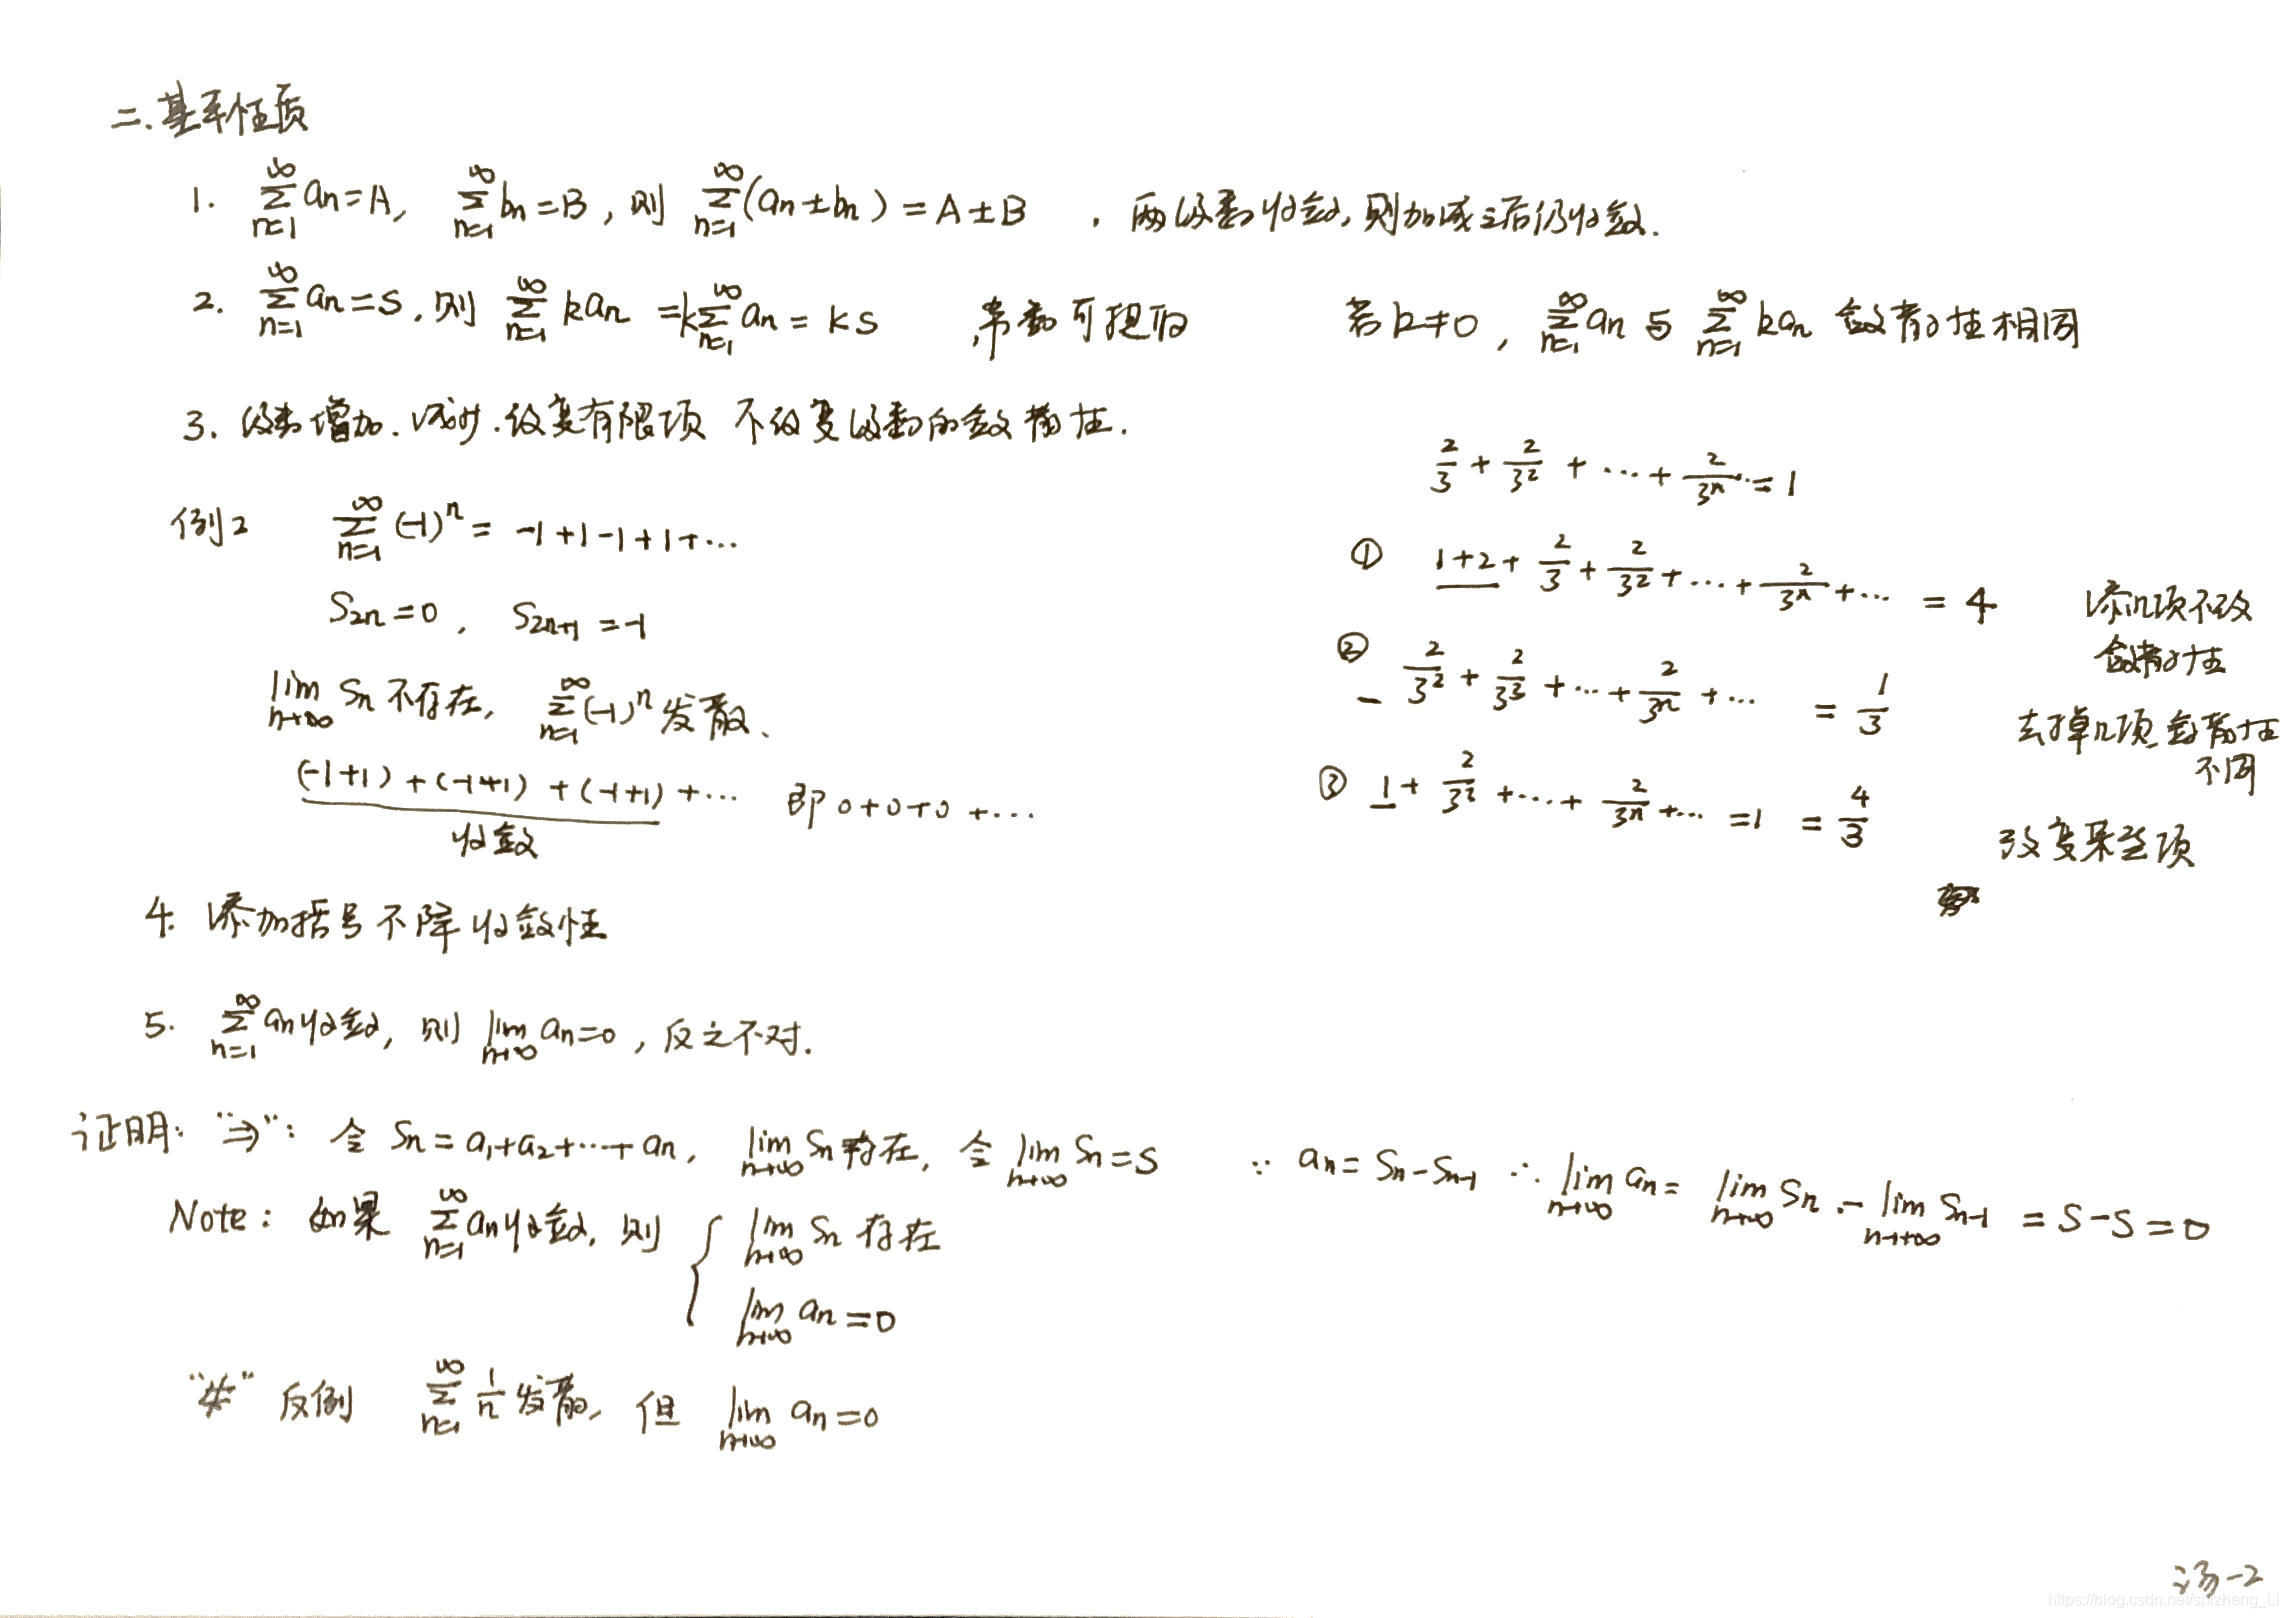 二.基本性质
1. ∑_{n=1}^{∞} aₙ=A, ∑_{n=1}^{∞} bₙ=B, 则 ∑_{n=1}^{∞}(aₙ±bₙ)=A±B , 两级数收敛,则加减之后仍收敛.
2. ∑_{n=1}^{∞} aₙ=S, 则 ∑_{n=1}^{∞} kaₙ =k∑_{n=1}^{∞} aₙ= kS ,常数可提取 若k≠0, ∑_{n=1}^{∞} aₙ与 ∑_{n=1}^{∞} kaₙ 敛散性相同
3. 级数增加.减少.改变有限项 不改变级数的敛散性.
2/3 + 2/3² + ⋯ + 2/3ⁿ ⋯ = 1
例2 ∑_{n=1}^{∞} (-1)ⁿ = -1+1-1+1+⋯
① 1+2+ 2/3 + 2/3² + ⋯ + 2/3ⁿ + ⋯ = 4 添几项不改
敛散性
S₂ₙ=0, S₂ₙ₊₁=-1
② - 2/3² + 2/3³ + ⋯ + 2/3ⁿ + ⋯ = 1/3 去掉几项,敛散性
不同
lim_{n→∞} Sₙ 不存在, ∑_{n=1}^{∞}(-1)ⁿ 发散、
③ 1+ 2/3² + ⋯ + 2/3ⁿ + ⋯ =1 = 4/3 改变某些项
(-1+1)+(-1+1)+(-1+1)+⋯ 即 0+0+0+⋯
收敛
4. 添加括号不降收敛性
5. ∑_{n=1}^{∞} aₙ收敛, 则 lim_{n→∞} aₙ=0, 反之不对.
证明: "⇒": 令 Sₙ=a₁+a₂+⋯+aₙ, lim_{n→∞} Sₙ存在, 令 lim_{n→∞} Sₙ=S ∵ aₙ=Sₙ-Sₙ₋₁ ∴ lim_{n→∞} aₙ= lim_{n→∞} Sₙ - lim_{n→+∞} Sₙ₋₁ = S-S=0
Note: 如果 ∑_{n=1}^{∞} aₙ收敛, 则 { lim_{n→∞} Sₙ 存在
lim_{n→∞} aₙ=0
"⇍" 反例 ∑_{n=1}^{∞} 1/n 发散, 但 lim_{n→∞} aₙ=0
汤-2
https://blog.csdn.net/shizheng_Li